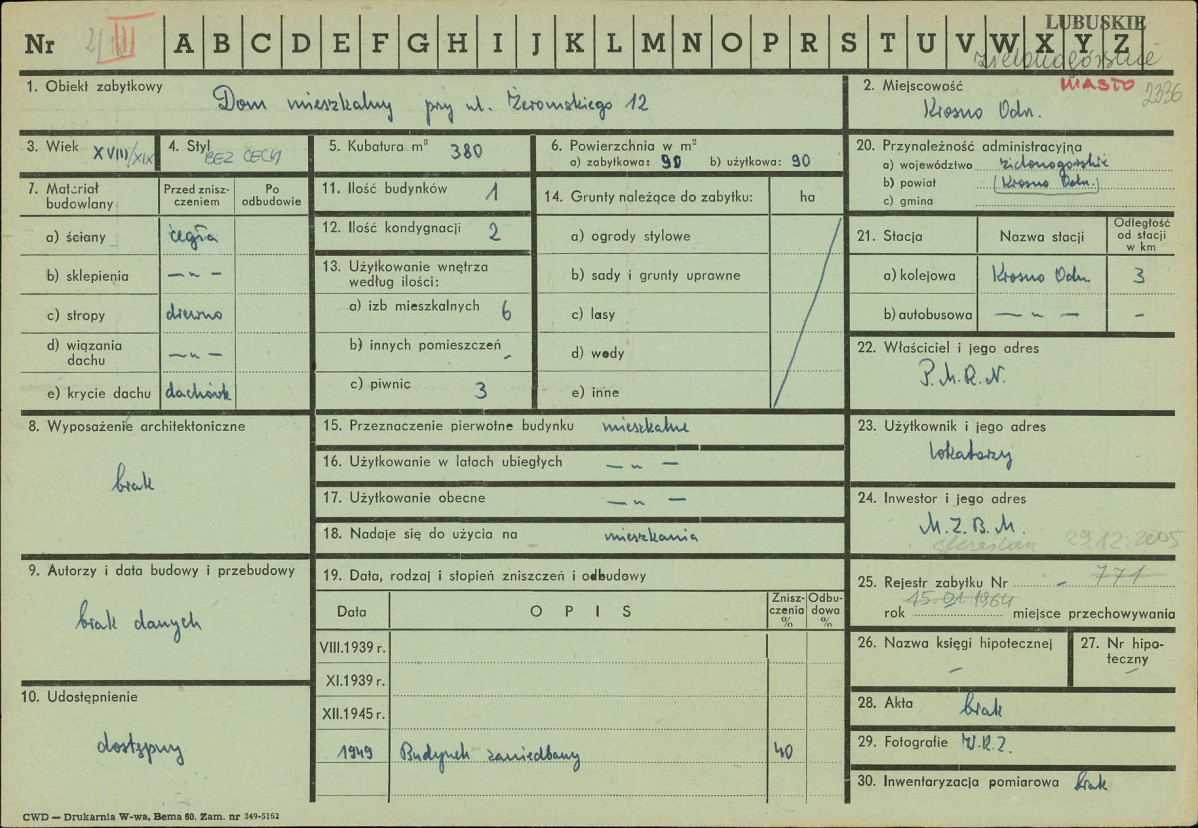 Nr III A B C D E F G H I J K L M N O P R S T U V W X Y Z
LUBUSKIE
zielonogórskie
1. Obiekt zabytkowy Dom mieszkalny przy ul. Żeromskiego 12
2. Miejscowość MIASTO 2336
Krosno Odn.
3. Wiek XVIII/XIX
4. Styl BEZ CECH
5. Kubatura m³ 380
6. Powierzchnia w m²
a) zabytkowa: 90 b) użytkowa: 90
7. Materiał budowlany
Przed zniszczeniem
Po odbudowie
a) ściany cegła
b) sklepienia — „ —
c) stropy drewno
d) wiązania dachu — „ —
e) krycie dachu dachówk
8. Wyposażenie architektoniczne
brak
9. Autorzy i data budowy i przebudowy
brak danych
10. Udostępnienie
dostępny
11. Ilość budynków 1
12. Ilość kondygnacji 2
13. Użytkowanie wnętrza według ilości:
a) izb mieszkalnych 6
b) innych pomieszczeń -
c) piwnic 3
14. Grunty należące do zabytku: ha
a) ogrody stylowe
b) sady i grunty uprawne
c) lasy
d) wody
e) inne
15. Przeznaczenie pierwotne budynku mieszkalne
16. Użytkowanie w latach ubiegłych — „ —
17. Użytkowanie obecne — „ —
18. Nadaje się do użycia na mieszkania
19. Data, rodzaj i stopień zniszczeń i odbudowy
Data OPIS Zniszczenia % Odbudowa %
VIII.1939 r.
XI.1939 r.
XII.1945 r.
1949 Budynek zaniedbany 40
20. Przynależność administracyjna
a) województwo zielonogórskie
b) powiat (Krosno Odn.)
c) gmina
21. Stacja Nazwa stacji Odległość od stacji w km
a) kolejowa Krosno Odn. 3
b) autobusowa — „ — -
22. Właściciel i jego adres
P.M.R.N.
23. Użytkownik i jego adres
lokatorzy
24. Inwestor i jego adres
M.Z.B.M.
29.12.2005
25. Rejestr zabytku Nr - 771
15.01.1964
rok miejsce przechowywania
26. Nazwa księgi hipotecznej -
27. Nr hipoteczny -
28. Akta brak
29. Fotografie W.K.Z.
30. Inwentaryzacja pomiarowa brak
CWD — Drukarnia W-wa, Bema 60. Zam. nr 349-5162